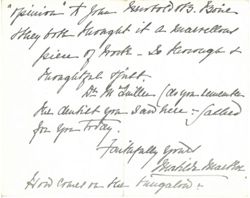 "opinion" to John Newbold & B. Paine
they both thought it a marvellous
piece of work - So thorough &
thoughtful a split
Dr. McTuller (do you remember
the dentist you saw here - called
for you today.
Faithfully yours
Mathilde
How comes on the Bungalow?